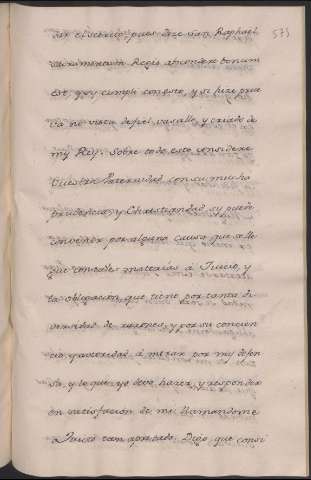 575
dar el servicio, pues dize San Raphael,
sacramentum Regis abscondere bonum
est, yo y cumplo con esto, y si hize prue
va no vista de fiel vasallo, y criado de
my Rey. Sobre todo esto considere
Vuestra Paternidad con su mucha
prudencia, y Christiandad si puede
convenir por alguna causa que se lle
gue con tales materias á Juicio, y
la obligacion que tiene por tanta di
versidad de razones, y por su concien
cia, y autoridad á mirar por my defen
sa, y lo que yo devo hazer, y responder
en satisfacion de mi llamandome
a Juicio tan apretado. Digo que consi